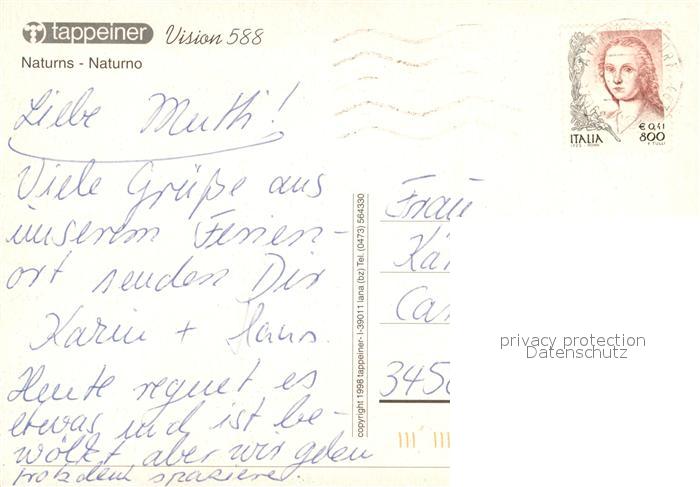 tappeiner Vision 588
Naturns - Naturno
Liebe Mutti!
Viele Grüße aus
unserem Ferien-
ort senden Dir
Karin + Hans.
Heute regnet es
etwas und ist be-
wölkt aber wir gehen
trotzdem spazieren.
copyright 1998 tappeiner- I-39011 lana (bz) Tel. (0473) 564330
ITALIA
€ 0,41
800
F. TULLI
Frau
privacy protection
Datenschutz